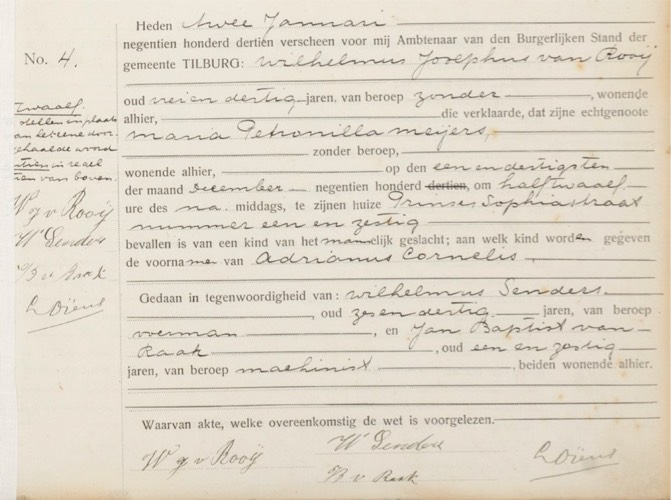 No. 4.
Heden twee Januari
negentien honderd dertien verscheen voor mij Ambtenaar van den Burgerlijken Stand der
gemeente TILBURG: Wilhelmus Josephus van Rooij
oud vier en dertig jaren, van beroep zonder, wonende
alhier, die verklaarde, dat zijne echtgenoote
Maria Petronilla Meijers,
zonder beroep,
wonende alhier, op den een en dertigsten
der maand December negentien honderd dertien, om half twaalf
ure des na middags, te zijnen huize Prinses Sophiastraat
nummer een en zestig
bevallen is van een kind van het mannelijk geslacht; aan welk kind worden gegeven
de voornamen van Adrianus Cornelis.
Gedaan in tegenwoordigheid van: Wilhelmus Senders
, oud zes en dertig jaren, van beroep
voerman, en Jan Baptist van
Raak, oud een en zestig
jaren, van beroep machinist, beiden wonende alhier.
Waarvan akte, welke overeenkomstig de wet is voorgelezen.
W g v Rooij
W Senders
B v Raak
Twaalf
stellen en plaats
van het eene door-
gehaalde woord
in regel
tien van boven.
W g v Rooij
W Senders
B v Raak